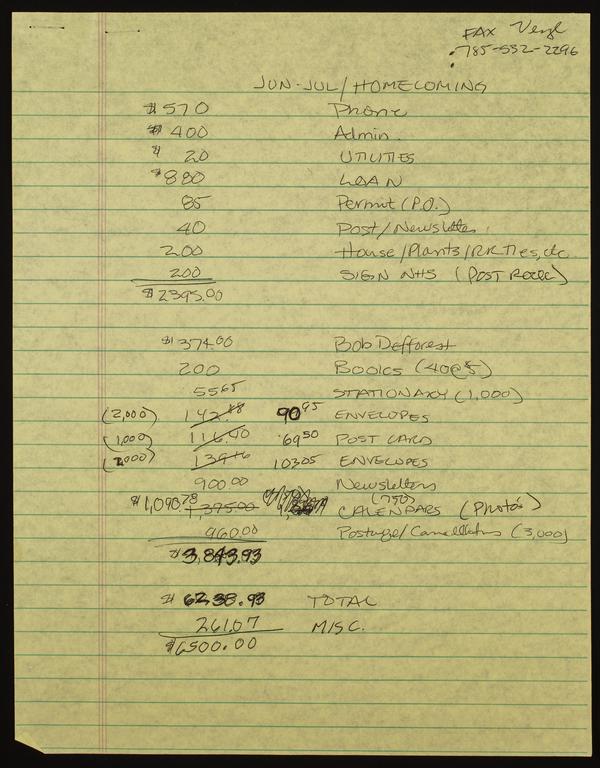 FAX Verl
785-532-2296
JUN-JUL/HOMECOMING
$570 Phone
$400 Admin.
$20 UTILITIES
$880 LOAN
85 Permit (P.O.)
40 Post/Newsletter
200 House/Plants/RR Ties, etc
200 SIGN NHS (POST ROCK)
$2395.00
$374.00 Bob Defforest
200 Books (40@$5)
5565 STATIONARY (1,000)
(2,000) 142.48 9095 ENVELOPES
(1,000) 116.40 6950 POST CARD
(2,000) 139.46 10305 ENVELOPES
900.00 Newsletters
$1,090.78 1,395.00 (750) CALENDARS (Photos)
960.00 Postage/Cancellation (3,000)
$3,843.93
$6238.93 TOTAL
261.07 MISC.
$6500.00